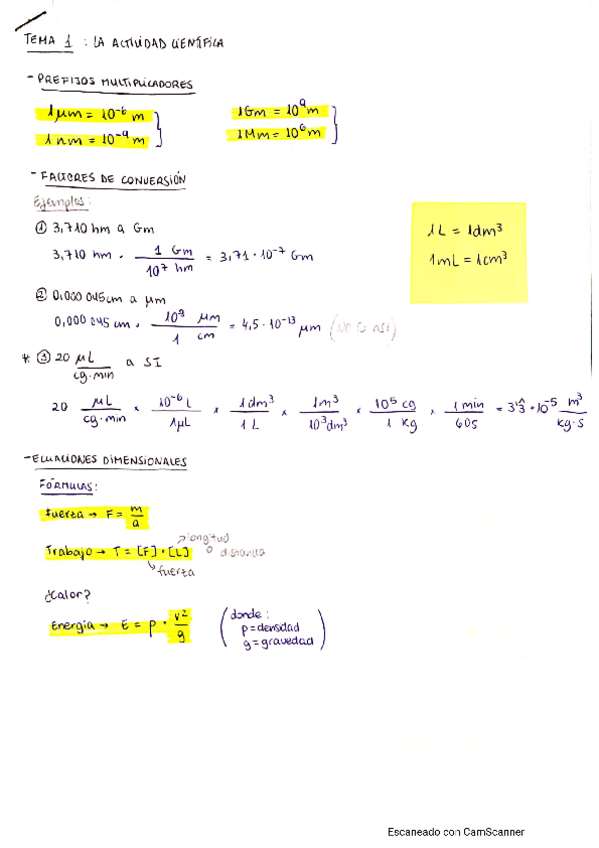 TEMA 1 : LA ACTIVIDAD CIENTÍFICA
- PREFIJOS MULTIPLICADORES
1 μm = 10⁻⁶ m
1 nm = 10⁻⁹ m
1 Gm = 10⁹ m
1 Mm = 10⁶ m
- FACTORES DE CONVERSIÓN
Ejemplos:
① 3,710 hm a Gm
3,710 hm · 1 Gm / 10⁷ hm = 3,71 · 10⁻⁷ Gm
1 L = 1 dm³
1 mL = 1 cm³
② 0,000 045 cm a μm
0,000 045 cm · μm / 1 cm = 4,5 · 10⁻¹³ μm
* ③ 20 μL / cg·min a SI
20 μL / cg·min × 10⁻⁶ L / 1 μL × 1 dm³ / 1 L × 1 m³ / 10³ dm³ × 10⁵ cg / 1 kg × 1 min / 60 s = 3'3 · 10⁻⁵ m³ / kg·s
- ECUACIONES DIMENSIONALES
FÓRMULAS:
Fuerza → F = m / a
Trabajo → T = [F] · [L]
longitud
o distancia
fuerza
¿Calor?
Energía → E = p · v² / g
(donde:
p = densidad
g = gravedad)
Escaneado con CamScanner